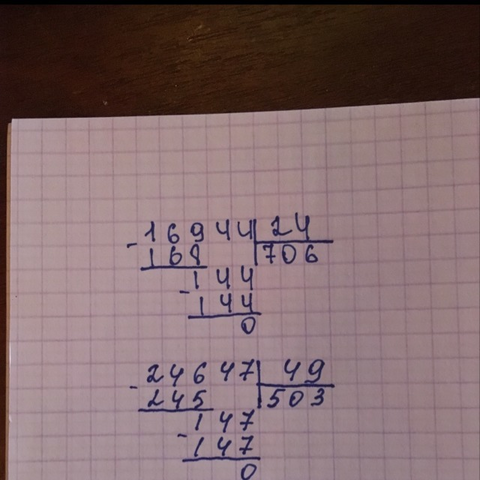 - 16944 | 24
168 | 706
- 144
144
0
- 24647 | 49
245 | 503
- 147
147
0